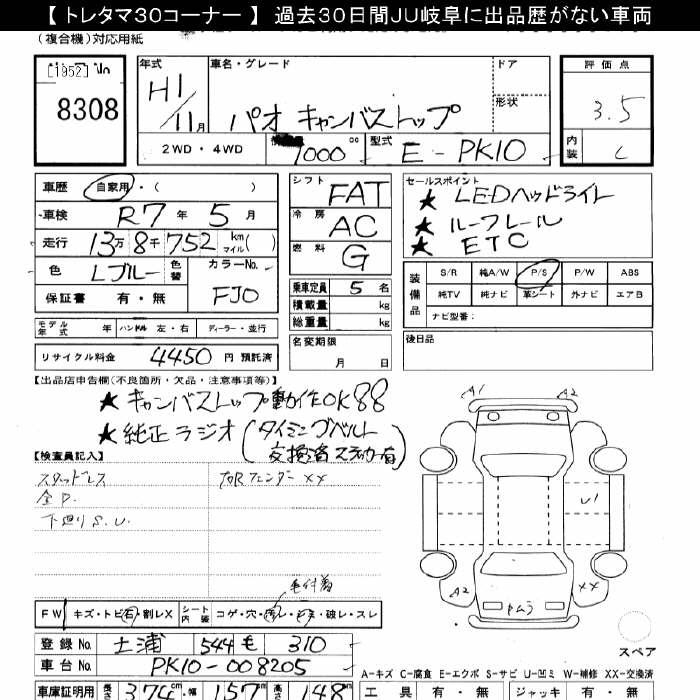 【 トレタマ30コーナー 】 過去30日間JU岐阜に出品歴がない車両
(複合機)対応用紙
[1952] No
8308
年式 車名・グレード ドア 評価点
H1/11月 パオ キャンバストップ 形状 3.5
2WD・4WD 1000 cc 型式 E-PK10 内装 C
車歴 自家用・( )
車検 R7年 5月
走行 13万8千752 km マイル( )
色 Lブルー 色替 カラーNo. FJO
保証書 有・無
シフト FAT
冷房 AC
燃料 G
乗車定員 5 名
積載量 kg
総重量 kg
名変期限 月 日
セールスポイント ★ LEDヘッドライト
★ ルーフレール
★ ETC
装備品 S/R 純A/W P/S P/W ABS
純TV 純ナビ 革シート 外ナビ エアB
ナビ型番:
モデル年式 年 ハンドル 左・右 ディーラー・並行
後日品
リサイクル料金 4450 円 預託済
【出品店申告欄(不良箇所・欠品・注意事項等)】
★ キャンバストップ動作OK 88
★ 純正ラジオ (タイミングベルト
交換済ステッカー有)
【検査員記入】
スタッドレス
全P.
下廻りS.U.
右Rフェンダー XX
A1 A2
U1
A2 XX
トムラ
毛付着
FW キズ・トビ石・割レX シート内装 コゲ・穴・汚レ・ ・破レ・スレ
スペア
登録No. 土浦 544 も 310
車台No. PK10-008205
A-キズ C-腐食 E-エクボ S-サビ U-凹ミ W-補修 XX-交換済
車庫証明用 長さ 374 cm・幅 157 148
工具 有・無 ジャッキ 有・無